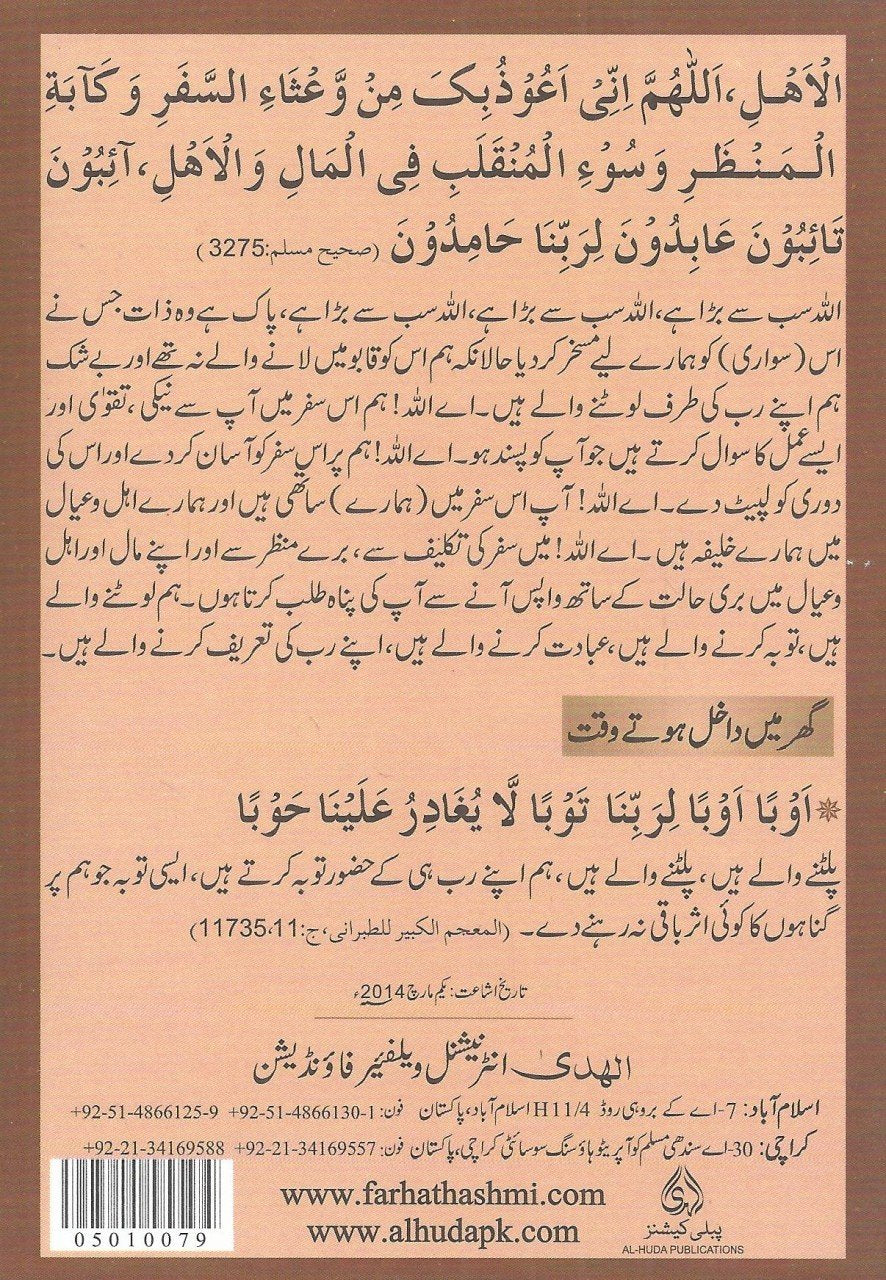 الْاَهْلِ، اَللّٰهُمَّ اِنِّیْ اَعُوْذُبِکَ مِنْ وَّعْثَاءِ السَّفَرِ وَ کَآبَةِ
الْمَنْظَرِ وَسُوْءِ الْمُنْقَلَبِ فِی الْمَالِ وَالْاَهْلِ، آئِبُوْنَ
تَائِبُوْنَ عَابِدُوْنَ لِرَبِّنَا حَامِدُوْنَ (صحیح مسلم:3275)
اللہ سب سے بڑا ہے، اللہ سب سے بڑا ہے، اللہ سب سے بڑا ہے، پاک ہے وہ ذات جس نے
اس (سواری) کو ہمارے لیے مسخر کر دیا حالانکہ ہم اس کو قابو میں لانے والے نہ تھے اور بے شک
ہم اپنے رب کی طرف لوٹنے والے ہیں۔ اے اللہ! ہم اس سفر میں آپ سے نیکی، تقوٰی اور
ایسے عمل کا سوال کرتے ہیں جو آپ کو پسند ہو۔ اے اللہ! ہم پر اس سفر کو آسان کر دے اور اس کی
دوری کو لپیٹ دے۔ اے اللہ! آپ اس سفر میں (ہمارے) ساتھی ہیں اور ہمارے اہل و عیال
میں ہمارے خلیفہ ہیں۔ اے اللہ! میں سفر کی تکلیف سے، برے منظر سے اور اپنے مال اور اہل
و عیال میں بری حالت کے ساتھ واپس آنے سے آپ کی پناہ طلب کرتا ہوں۔ ہم لوٹنے والے
ہیں، توبہ کرنے والے ہیں، عبادت کرنے والے ہیں، اپنے رب کی تعریف کرنے والے ہیں۔
گھر میں داخل ہوتے وقت
اَوْبًا اَوْبًا لِرَبِّنَا تَوْبًا لَّا یُغَادِرُ عَلَیْنَا حَوْبًا
پلٹنے والے ہیں، پلٹنے والے ہیں، ہم اپنے رب ہی کے حضور توبہ کرتے ہیں، ایسی توبہ جو ہم پر
گناہوں کا کوئی اثر باقی نہ رہنے دے۔ (المعجم الکبیر للطبرانی، ج:11،11735)
تاریخ اشاعت: یکم مارچ 2014ء
الہدیٰ انٹرنیشنل ویلفیئر فاؤنڈیشن
اسلام آباد: 7-اے کے بروہی روڈ H11/4 اسلام آباد، پاکستان فون: 1-4866130-51-92+ 9-4866125-51-92+
کراچی: 30-اے سندھی مسلم کوآپریٹو ہاؤسنگ سوسائٹی کراچی، پاکستان فون: +92-21-34169557 +92-21-34169588
www.farhathashmi.com
www.alhudapk.com
05010079
الہدی
پبلی کیشنز
AL-HUDA PUBLICATIONS